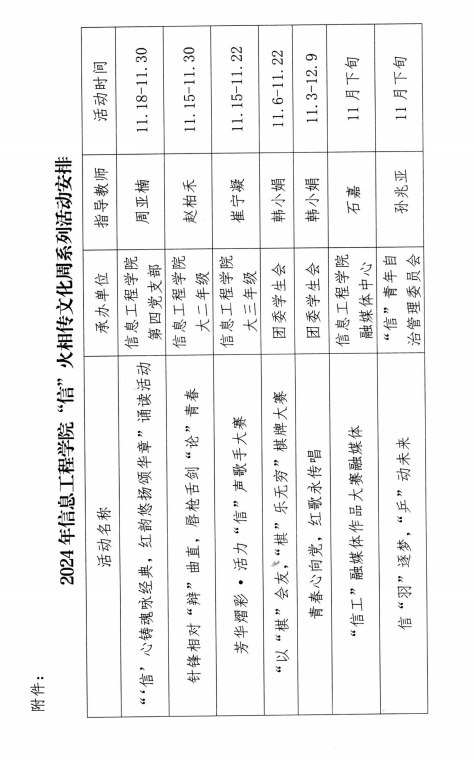 附件：
2024年信息工程学院“信”火相传文化周系列活动安排
活动名称 承办单位 指导教师 活动时间
“‘信’心铸魂咏经典，红韵悠扬颂华章”诵读活动 信息工程学院 第四党支部 周亚楠 11.18-11.30
针锋相对“辩”曲直，唇枪舌剑“论”青春 信息工程学院 大二年级 赵柏禾 11.15-11.30
芳华熠彩·活力“信”声歌手大赛 信息工程学院 大三年级 崔宁凝 11.15-11.22
“以“棋”会友，“棋”乐无穷”棋牌大赛 团委学生会 韩小娟 11.6-11.22
青春心向党，红歌永传唱 团委学生会 韩小娟 11.3-12.9
“信工”融媒体作品大赛融媒体 信息工程学院 融媒体中心 石嘉 11月下旬
信“羽”逐梦，“乒”动未来 “信”青年自 治管理委员会 孙兆亚 11月下旬